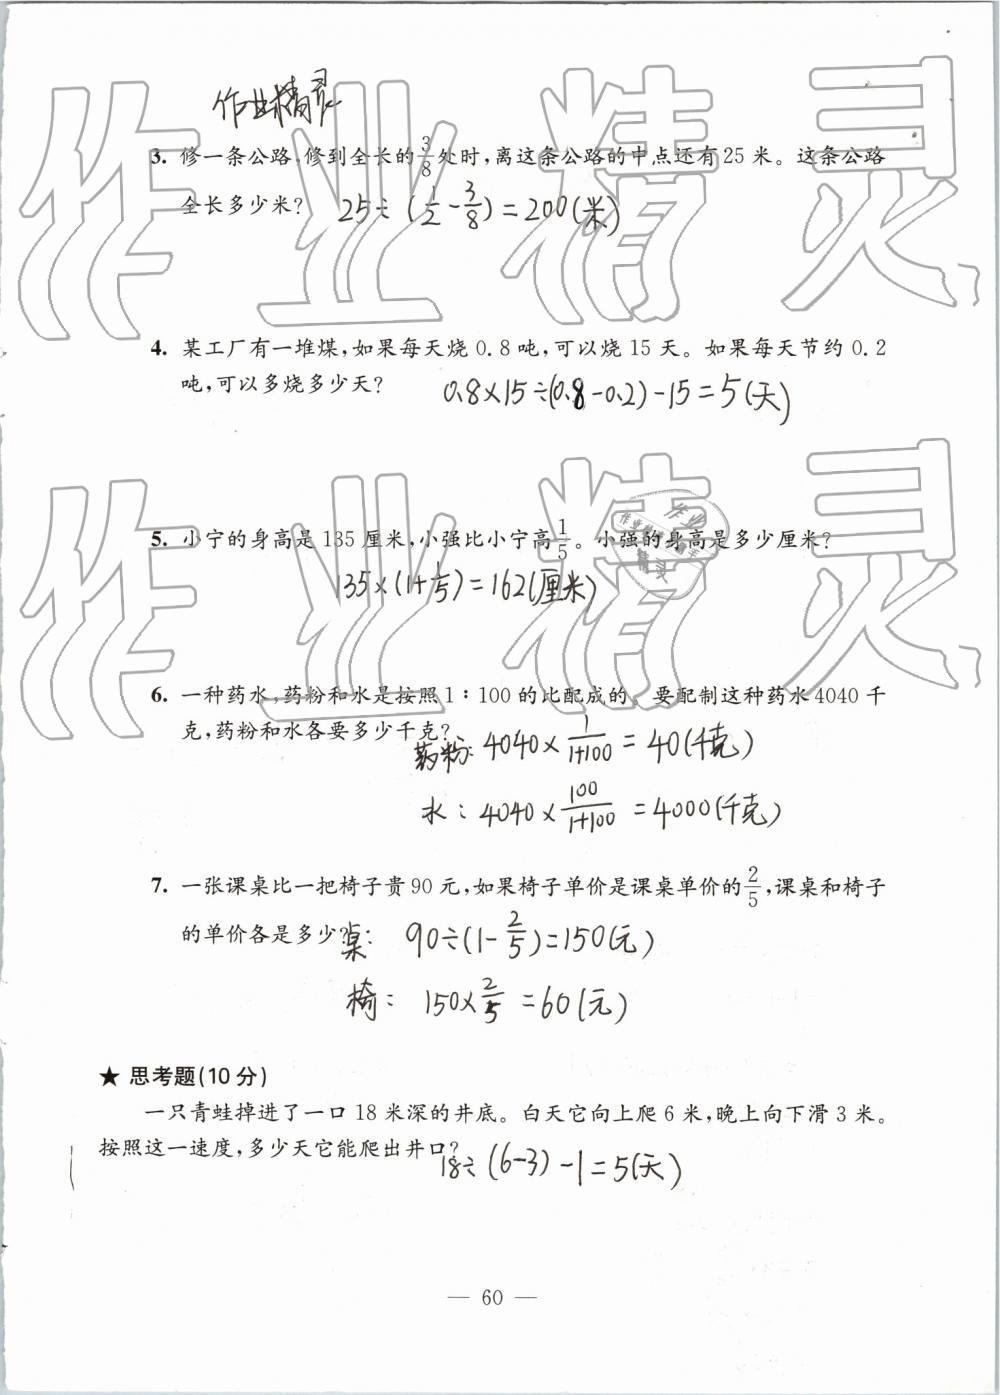 作业精灵
3. 修一条公路,修到全长的3/8处时,离这条公路的中点还有25米。这条公路
全长多少米? 25÷(1/2-3/8)=200(米)
4. 某工厂有一堆煤,如果每天烧0.8吨,可以烧15天。如果每天节约0.2
吨,可以多烧多少天? 0.8×15÷(0.8-0.2)-15=5(天)
5. 小宁的身高是135厘米,小强比小宁高1/5。小强的身高是多少厘米?
135×(1+1/5)=162(厘米)
6. 一种药水,药粉和水是按照1∶100的比配成的。要配制这种药水4040千
克,药粉和水各要多少千克?
药粉: 4040×1/(1+100)=40(千克)
水: 4040×100/(1+100)=4000(千克)
7. 一张课桌比一把椅子贵90元,如果椅子单价是课桌单价的2/5,课桌和椅子
的单价各是多少? 桌: 90÷(1-2/5)=150(元)
椅: 150×2/5=60(元)
★ 思考题(10分)
一只青蛙掉进了一口18米深的井底。白天它向上爬6米,晚上向下滑3米。
按照这一速度,多少天它能爬出井口? 18÷(6-3)-1=5(天)
— 60 —
作业精灵
作业精灵
作业
精灵